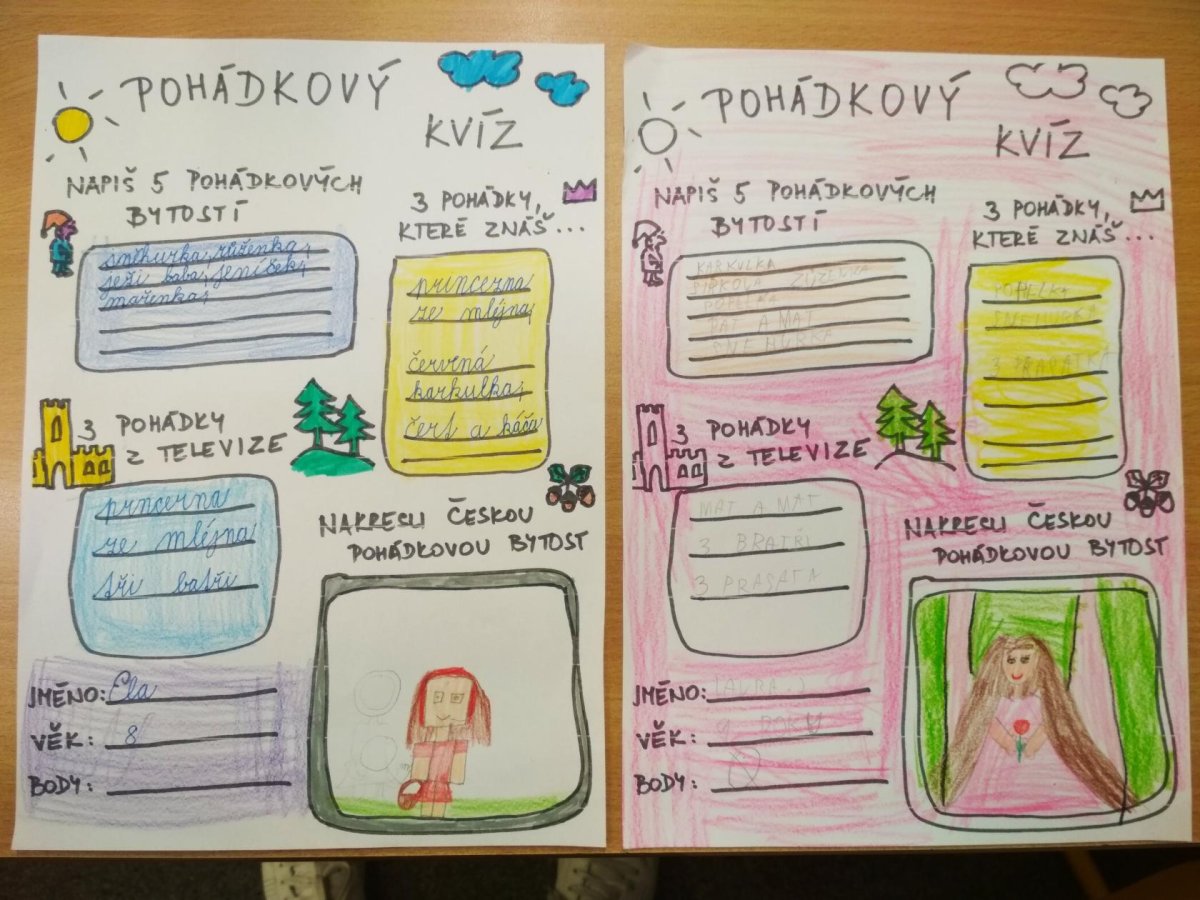 POHÁDKOVÝ
KVÍZ
NAPIŠ 5 POHÁDKOVÝCH
BYTOSTÍ
sněhurka, růženka,
ježi baba, jeníček,
mařenka,
3 POHÁDKY,
KTERÉ ZNÁŠ...
princezna
ze mlejna,
červená
karkulka,
čert a káča
3 POHÁDKY
Z TELEVIZE
princezna
ze mlejna
tři batři
NAKRESLI ČESKOU
POHÁDKOVOU BYTOST
JMÉNO: Ela
VĚK: 8
BODY:
POHÁDKOVÝ
KVÍZ
NAPIŠ 5 POHÁDKOVÝCH
BYTOSTÍ
KARKULKA
POPELKA
PAT A MAT
SNEHURKA
3 POHÁDKY,
KTERÉ ZNÁŠ...
POPELKA
SNEHURKA
3
3 POHÁDKY
Z TELEVIZE
MAT A MAT
3 BRATŘI
3 PRASATA
NAKRESLI ČESKOU
POHÁDKOVOU BYTOST
JMÉNO: LAURA
VĚK: 9 ROKU
BODY: